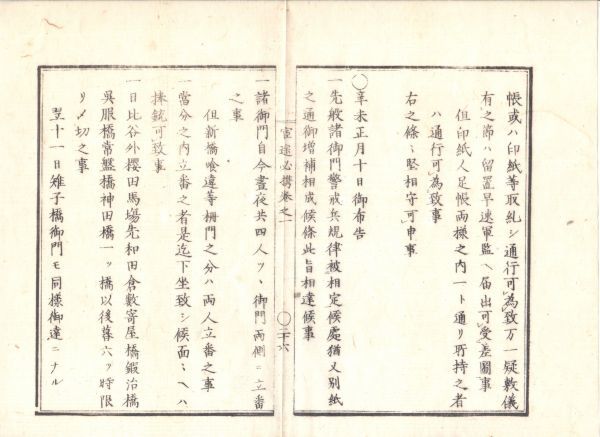 帳或ハ印紙等取糺シ通行可為致万一疑敷儀
有之節ハ留置早速軍監ヘ届出可受差圖事
但印紙人足帳兩樣之内一ト通リ所持之者
ハ通行可為致事
右之條々堅相守可申事
〇辛未正月十日御布告
一先般諸御門警戒兵規律被相定候處猶又別紙
之通御增補相成候條此旨相達候事
宣達必携卷之一
〇二十六
一諸御門自今晝夜共四人ツヽ御門兩側ニ立番
之事
但新橋喰違等柵門之分ハ兩人立番之事
一當分之内立番之者是迄下坐致シ候面々ヘハ
捧銃可致事
一日比谷外櫻田馬場先和田倉數寄屋橋鍜治橋
吳服橋常盤橋神田橋一ッ橋以後暮六ッ時限
リ〆切之事
翌十一日雉子橋御門モ同樣御達ニナル